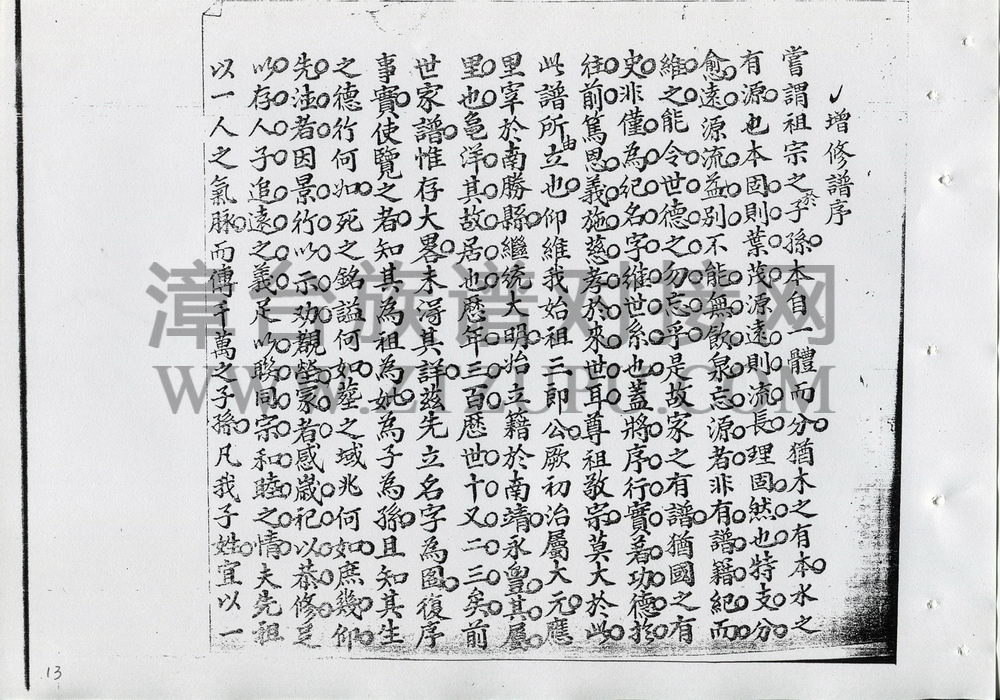 增修譜序
嘗謂祖宗之於子孫本自一體而分猶木之有本水之
有源也本固則葉茂源遠則流長理固然也特支分
愈遠源流益別不能無飲泉忘源者非有譜籍紀而
維之能令世德之勿忘乎是故家之有譜猶國之有
史非僅為紀名字維世系也蓋將序行實著功德於
往前篤思義施慈孝於來世耳尊祖敬宗莫大於此
此譜所由立也仰維我始祖三郎公厥初治屬大元應
里宰於南勝縣繼統大明始立籍於南靖永豐其屬
里也龜洋其故居也歷年三百歷世十又二三矣前
世家譜惟存大畧未淂其詳茲先立名字為圖復序
事實使覽之者知其為祖為妣為子為孫且知其生
之德行何如死之銘謚何如塟之域兆何如庶幾仰
先法者因景行以示劝觀塋冢者感嵗祀以恭修足
以存人子追遠之義足以聯同宗和睦之情夫先祖
以一人之氣脉而傳千萬之子孫凡我子姓宜以一
漳台族谱对接网
WWW.ZTZUPU.COM
13